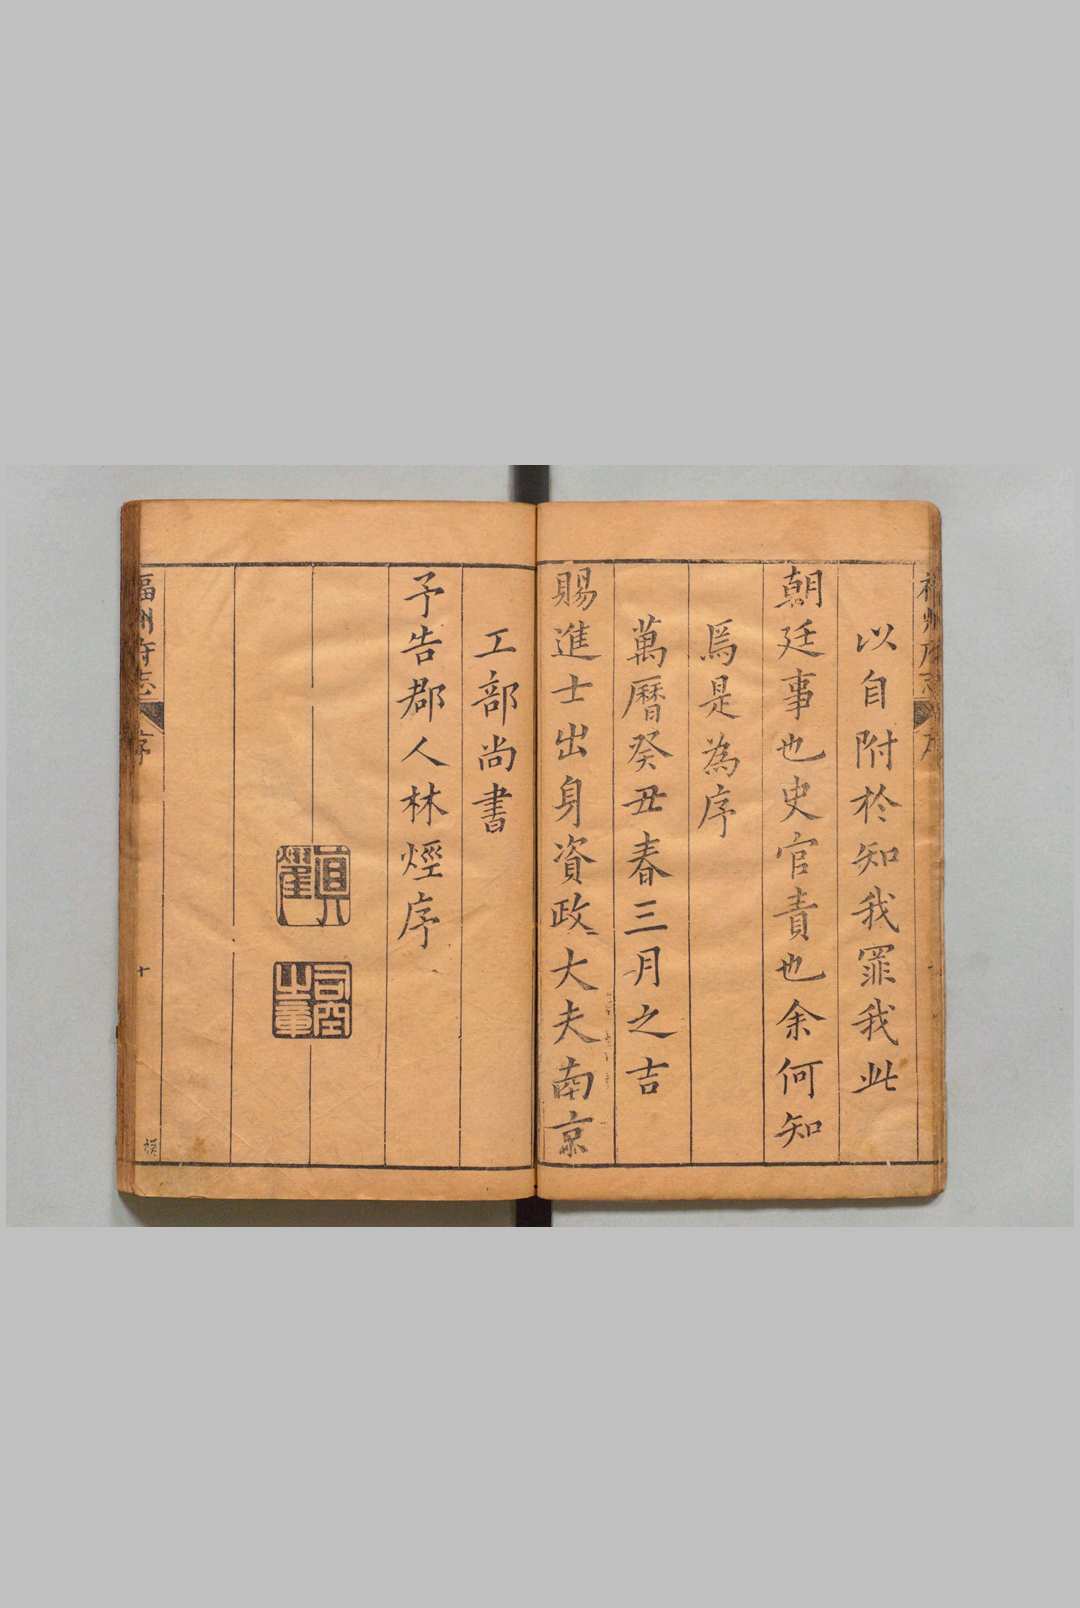 以自附於知我罪我此
朝廷事也史官責也余何知
焉是為序
萬曆癸丑春三月之吉
賜進士出身資政大夫南京
工部尚書
予告郡人林烴序
貞燿
司空之章
福州府志
序
十